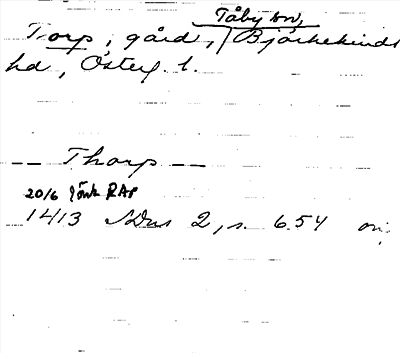 Tåby sn,
Torp, gård, Björkekinds
hd, Österg. l.
-- Thorp --
20/6 Jönk RAp
1413 SDns 2, s. 654 or.